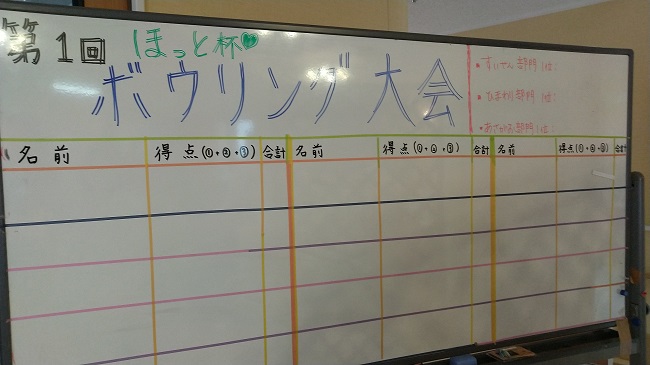 第1回 ほっと杯
ボウリング大会
・すいせん部門 1位:
・ひまわり部門 1位:
・あさがお部門 1位:
名前 得点(①+②+③) 合計 名前 得点(①+②+③) 合計 名前 得点(①+②+③) 合計